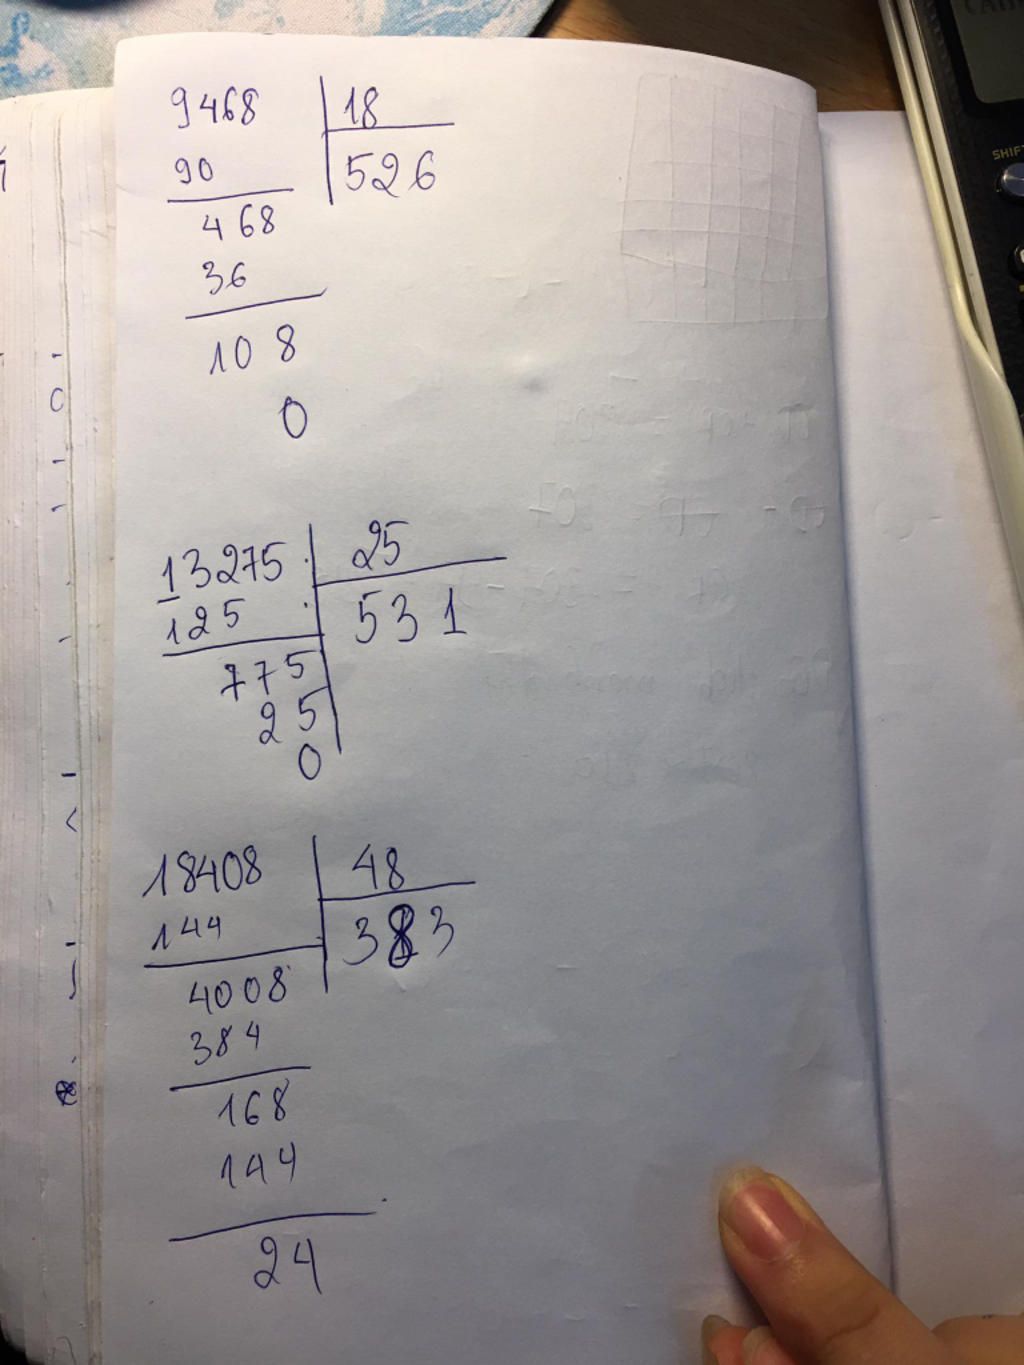 9468 18
90 526
468
36
108
0
13275 25
125 531
775
25
0
18408 48
144 383
4008
384
168
144
24
SHIFT